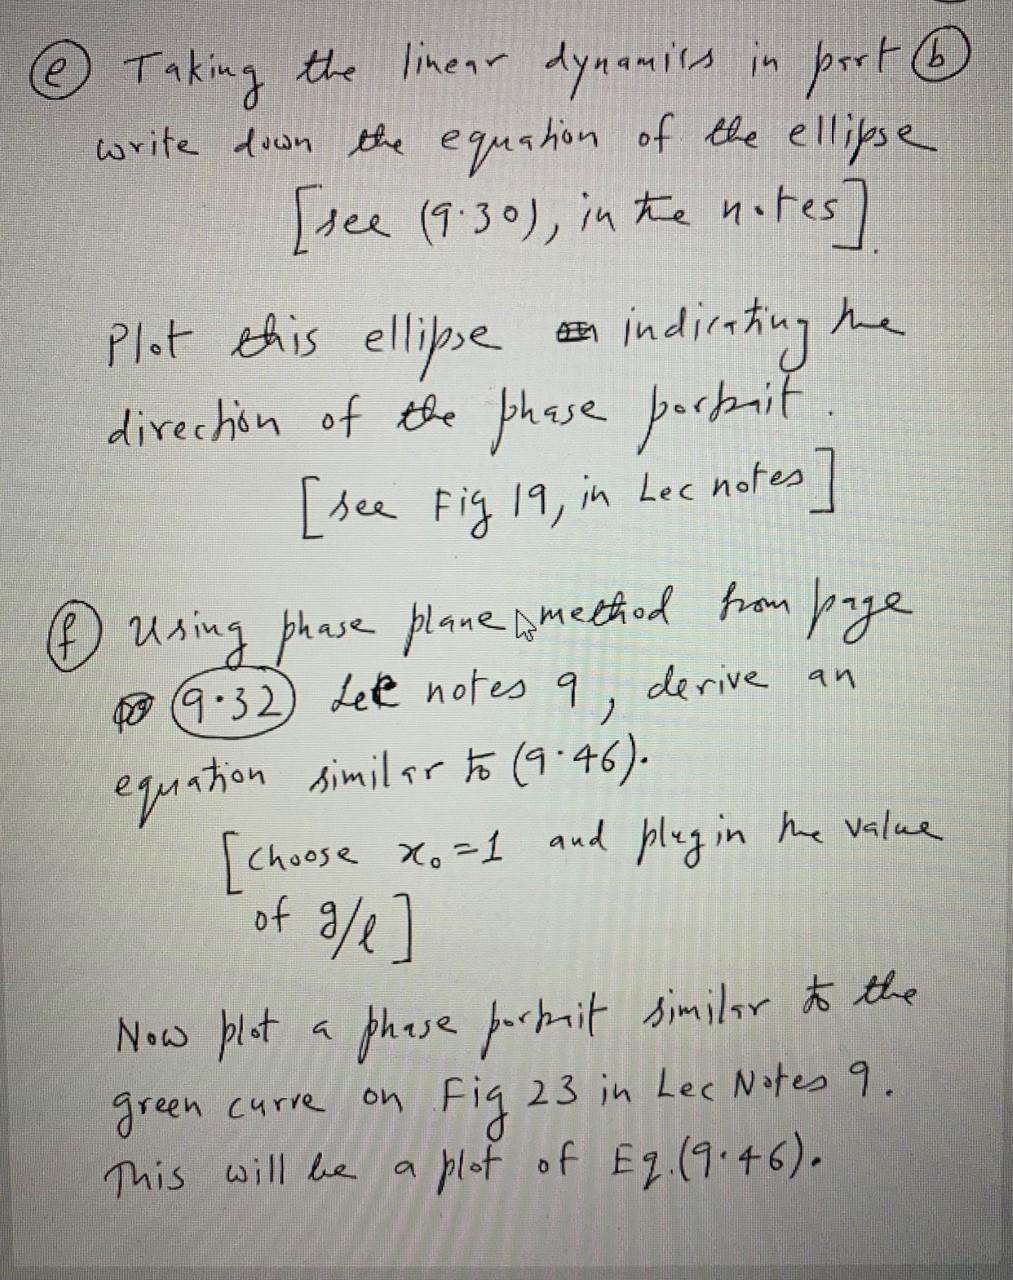 (e) Taking the linear dynamics in part (b)
write down the equation of the ellipse
[see (9.30), in the notes].
Plot this ellipse indicating the
direction of the phase portrait.
[see Fig 19, in Lec notes]
(f) Using phase plane method from page
(9.32) Lec notes 9, derive an
equation similar to (9.46).
[choose x₀=1 and plug in the value
of g/l]
Now plot a phase portrait similar to the
green curve on Fig 23 in Lec Notes 9.
This will be a plot of Eq.(9.46).